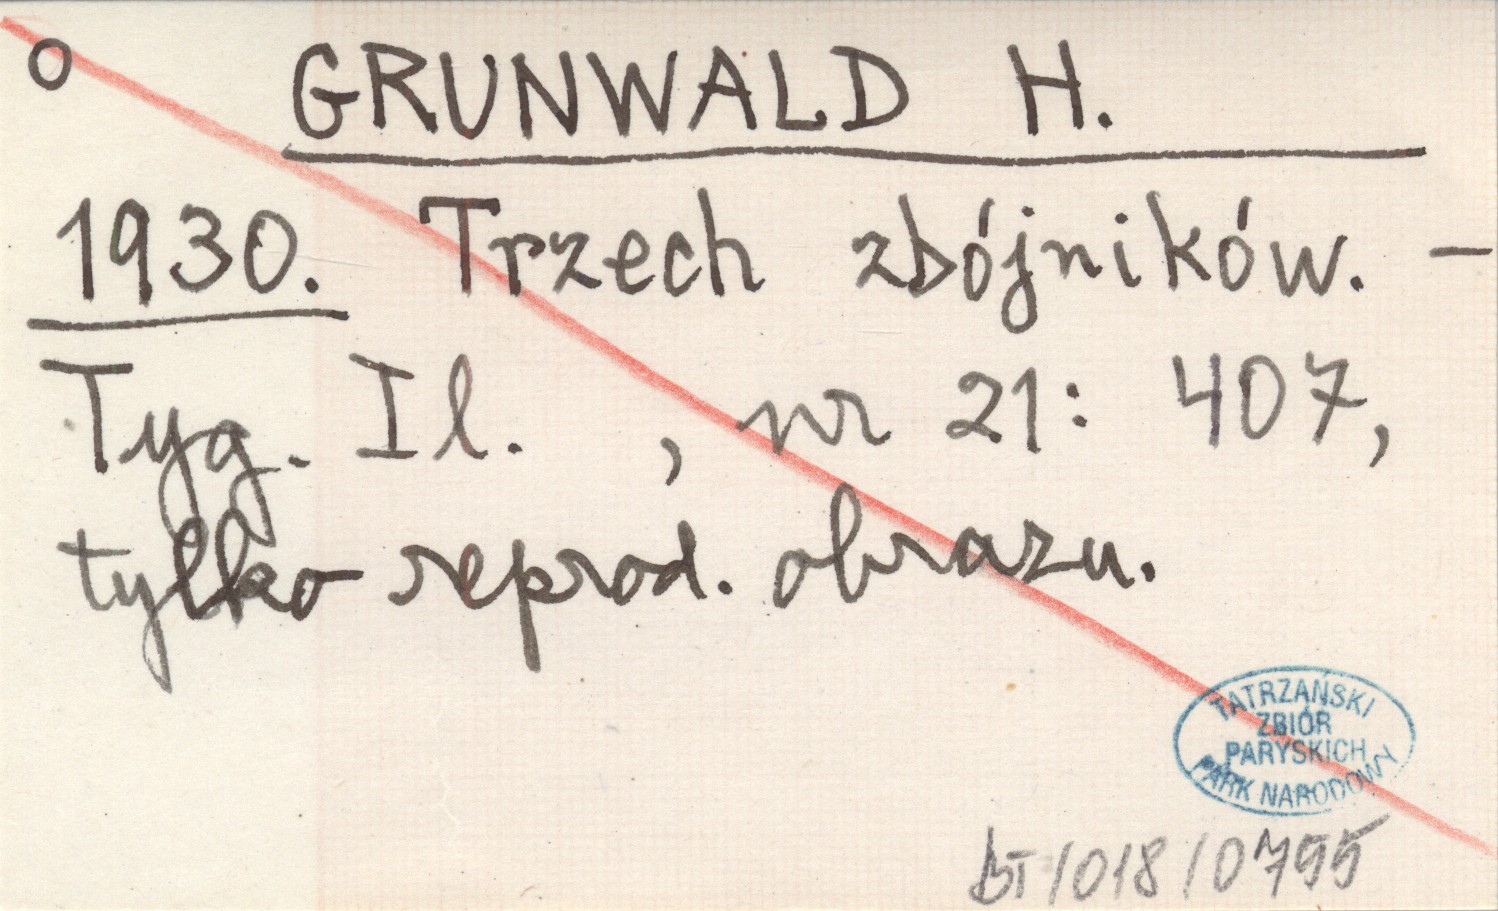 o GRUNWALD H.
1930. Trzech zbójników. -
Tyg. Il. , nr 21: 407,
tylko reprod. obrazu.
TATRZAŃSKI
ZBIÓR
PARYSKICH
PARK NARODOWY
BT/018/0795